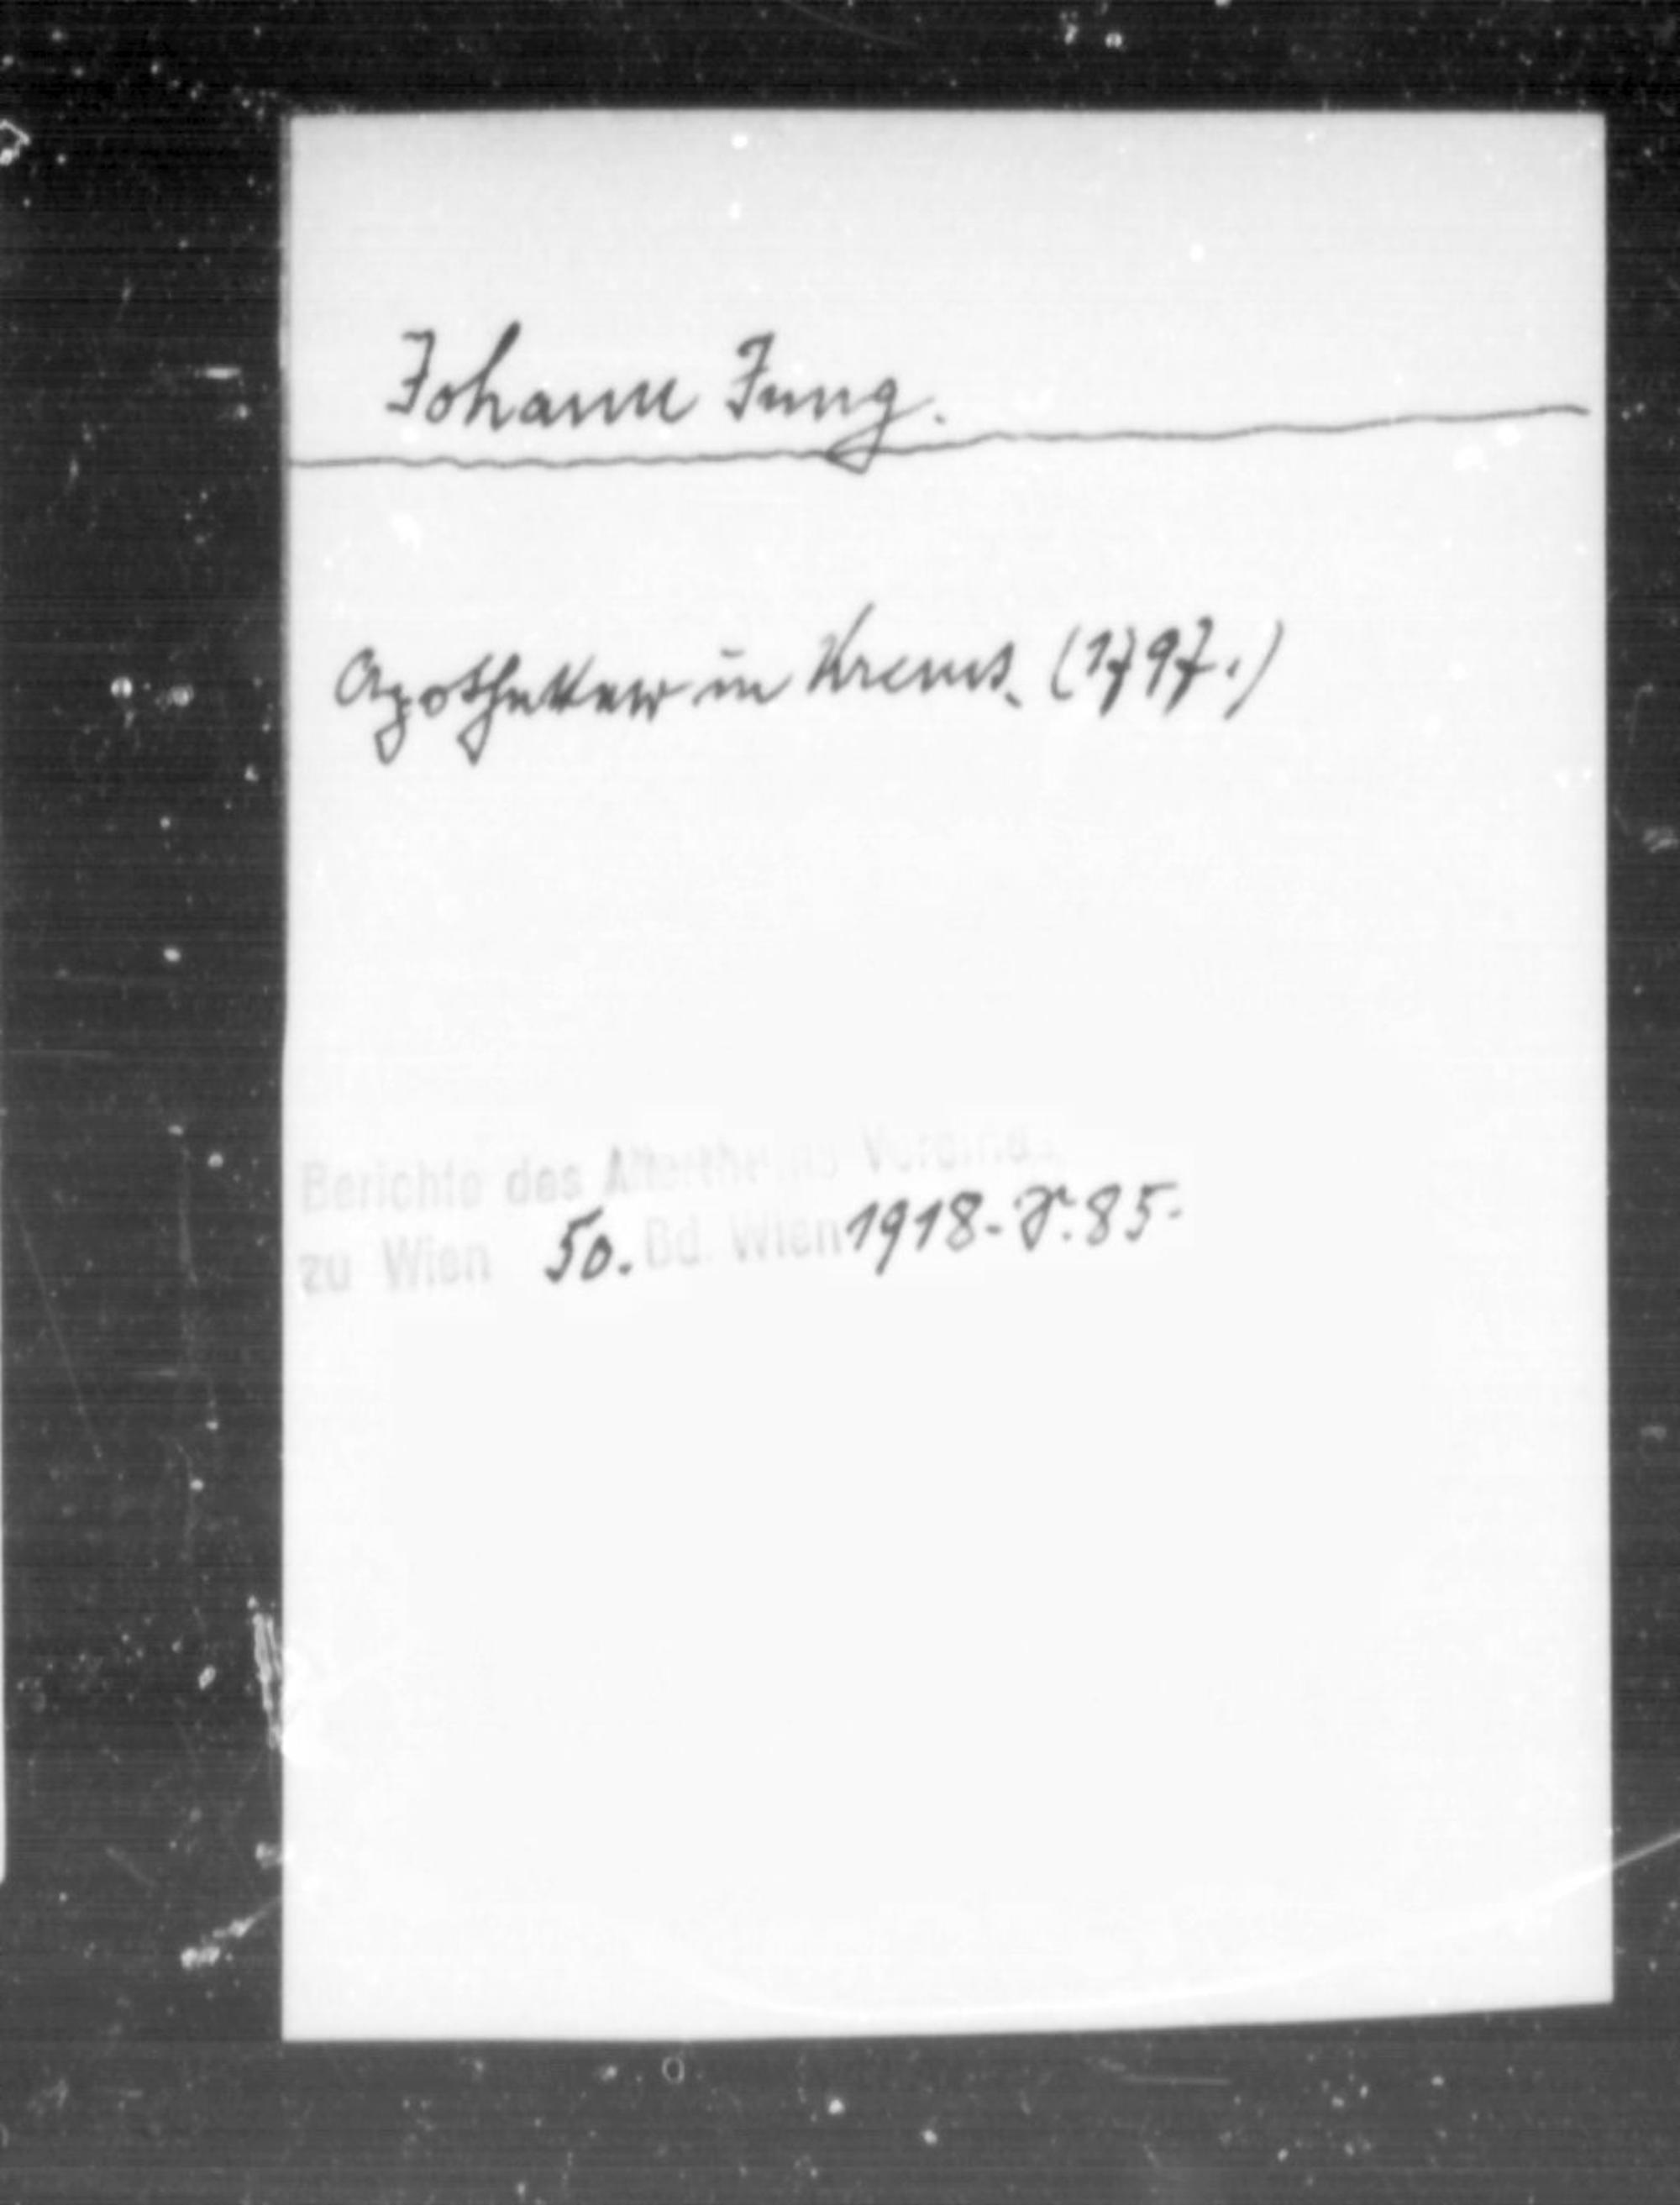 Johann Jung.
Apotheker in Krems. (1797.)
Berichte des Alterthums Vereines
zu Wien 50. Bd. Wien 1918. S. 85.